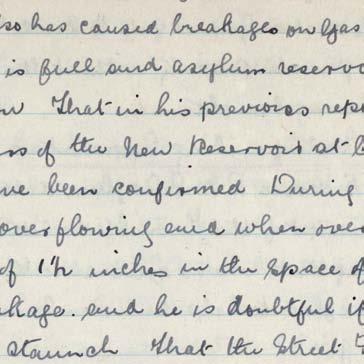 so has caused breakages on Gas
is full and asylum reservo
That in his previous rep
of the New Reservoir at
been confirmed During
overflowing and when over
of 1½ inches in the space of
kage. and he is doubtful if
staunch That the Street